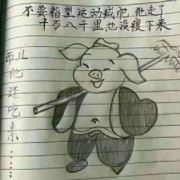 不要指望运动减肥，他走了
十万八千里也没瘦下来
而且
他
还
吃
素
……